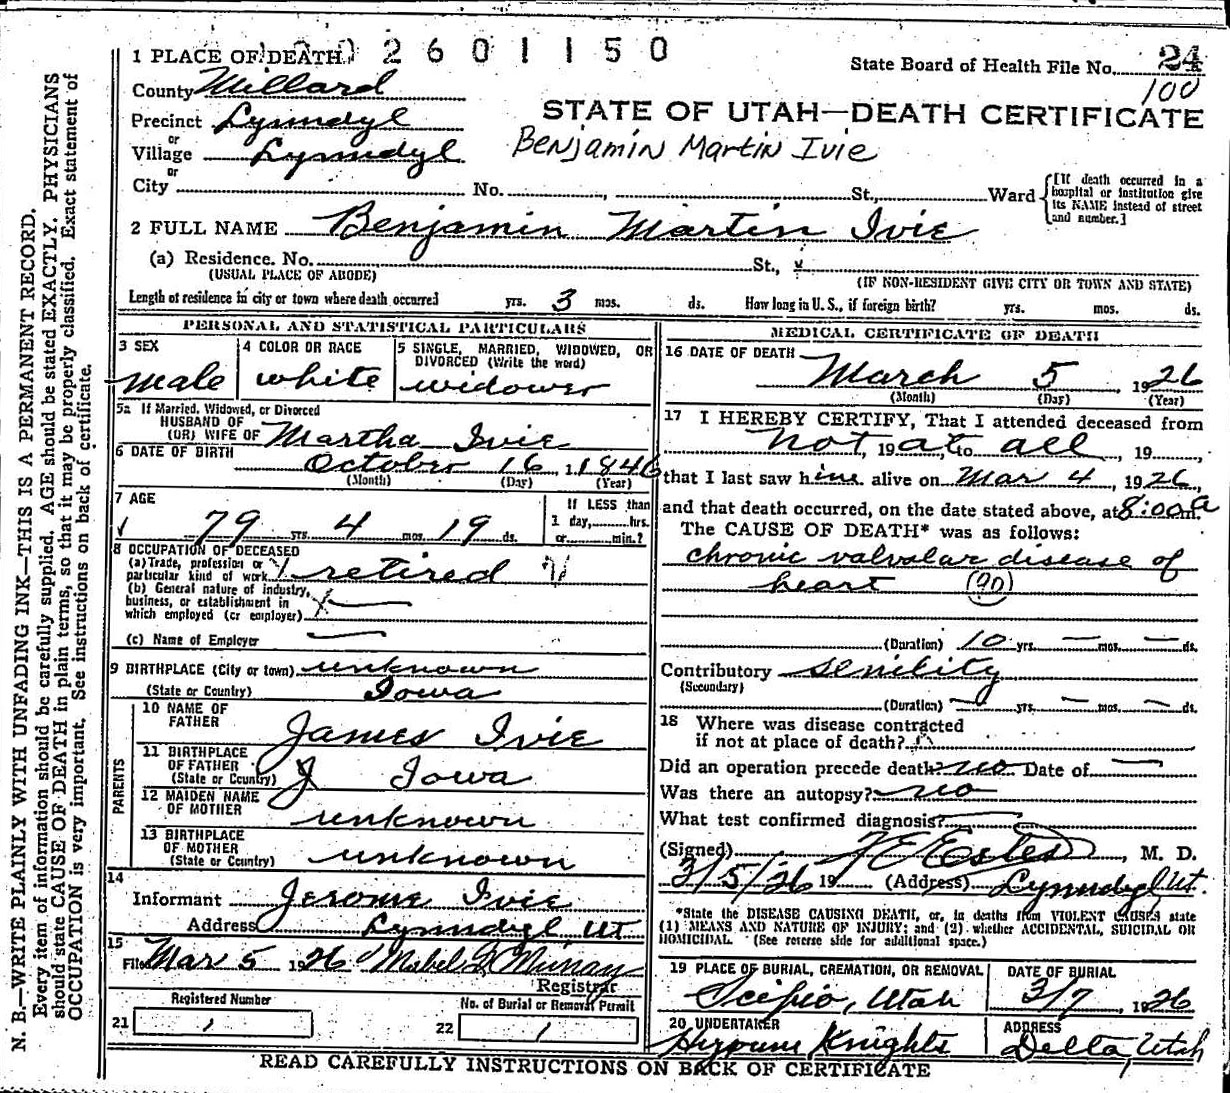 1 PLACE OF DEATH 2601150
State Board of Health File No. 24
100
County Millard
STATE OF UTAH—DEATH CERTIFICATE
Precinct Lynndyl
or
Benjamin Martin Ivie
Village Lynndyl
or
City No. , St., Ward
[If death occurred in a
hospital or institution give
its NAME instead of street
and number.]
2 FULL NAME Benjamin Martin Ivie
(a) Residence. No. St.,
(USUAL PLACE OF ABODE) (IF NON-RESIDENT GIVE CITY OR TOWN AND STATE)
Length of residence in city or town where death occurred yrs. 3 mos. ds. How long in U. S., if foreign birth? yrs. mos. ds.
PERSONAL AND STATISTICAL PARTICULARS
3 SEX
male
4 COLOR OR RACE
white
5 SINGLE, MARRIED, WIDOWED, OR
DIVORCED (Write the word)
widower
5a If Married, Widowed, or Divorced
HUSBAND OF
(OR) WIFE OF Martha Ivie
6 DATE OF BIRTH October 16 1846
(Month) (Day) (Year)
7 AGE
79 yrs. 4 mos. 19 ds.
If LESS than
1 day, hrs.
or min.?
8 OCCUPATION OF DECEASED
(a) Trade, profession or
particular kind of work retired
(b) General nature of industry,
business, or establishment in
which employed (or employer)
(c) Name of Employer
9 BIRTHPLACE (City or town) unknown
(State or Country) Iowa
PARENTS
10 NAME OF
FATHER James Ivie
11 BIRTHPLACE
OF FATHER
(State or Country) Iowa
12 MAIDEN NAME
OF MOTHER unknown
13 BIRTHPLACE
OF MOTHER
(State or Country) unknown
14
Informant Jerome Ivie
Address Lynndyl Ut
15
Filed Mar 5 1926 Mabel Murray
Registrar
Registered Number
21 1
No. of Burial or Removal Permit
22 1
MEDICAL CERTIFICATE OF DEATH
16 DATE OF DEATH March 5 1926
(Month) (Day) (Year)
17 I HEREBY CERTIFY, That I attended deceased from
not, 19 at, to all, 19 ,
that I last saw him alive on Mar 4, 1926,
and that death occurred, on the date stated above, at 8:00 a m.
The CAUSE OF DEATH* was as follows:
chronic valvular disease of
heart (90)
(Duration) 10 yrs. — mos. — ds.
Contributory senility
(Secondary)
(Duration) — yrs. — mos. — ds.
18 Where was disease contracted
if not at place of death?
Did an operation precede death? no Date of —
Was there an autopsy? no
What test confirmed diagnosis?
(Signed) Estes, M. D.
3/5/26 19 (Address) Lynndyl Ut.
*State the DISEASE CAUSING DEATH, or, in deaths from VIOLENT CAUSES, state
(1) MEANS AND NATURE OF INJURY; and (2) whether ACCIDENTAL, SUICIDAL OR
HOMICIDAL. (See reverse side for additional space.)
19 PLACE OF BURIAL, CREMATION, OR REMOVAL
Scipio, Utah
DATE OF BURIAL
3/7 1926
20 UNDERTAKER
Knights
ADDRESS
Delta, Utah
READ CAREFULLY INSTRUCTIONS ON BACK OF CERTIFICATE
N. B.—WRITE PLAINLY WITH UNFADING INK—THIS IS A PERMANENT RECORD.
Every item of information should be carefully supplied. AGE should be stated EXACTLY. PHYSICIANS
should state CAUSE OF DEATH in plain terms, so that it may be properly classified. Exact statement of
OCCUPATION is very important. See instructions on back of certificate.